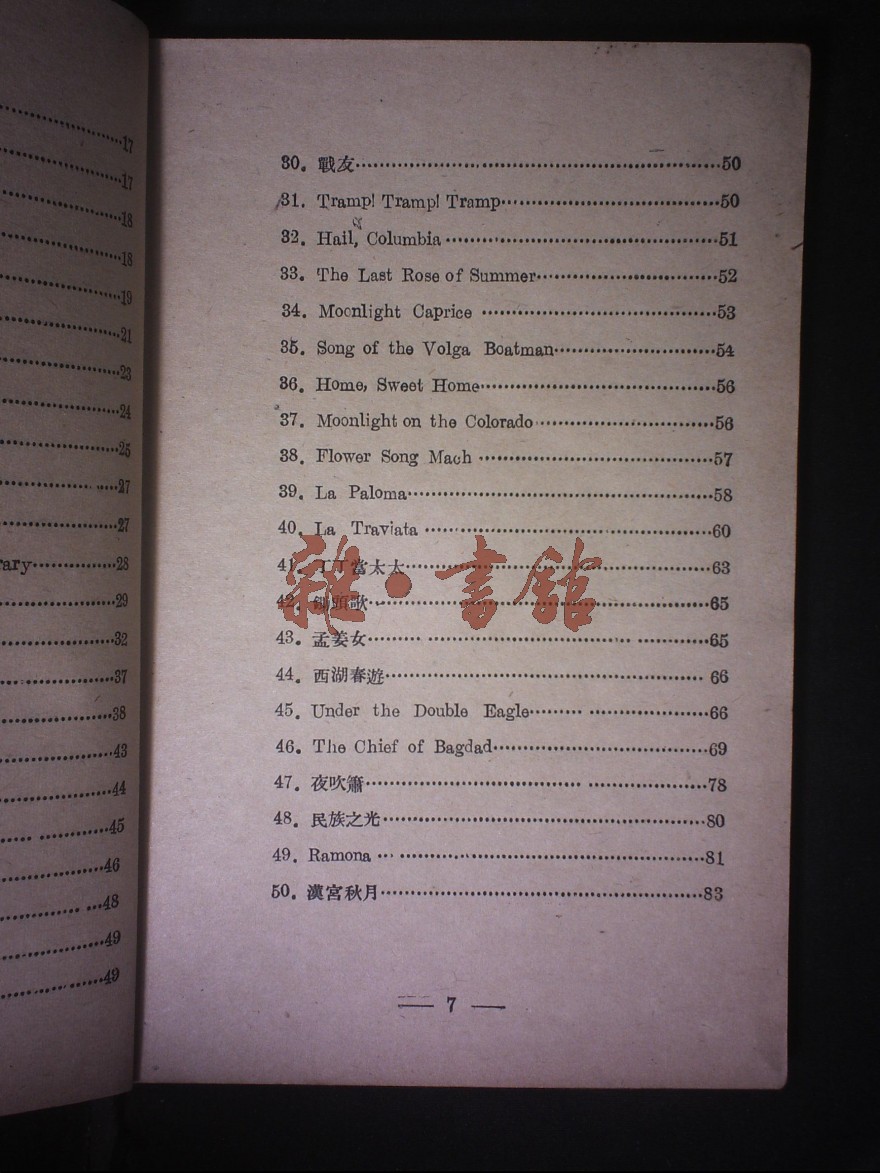 17
17
18
18
19
21
23
24
25
27
27
rary 28
29
32
37
38
43
44
45
46
48
49
49
30. 戰友 50
31. Tramp! Tramp! Tramp 50
32. Hail, Columbia 51
33. The Last Rose of Summer 52
34. Moonlight Caprice 53
35. Song of the Volga Boatman 54
36. Home, Sweet Home 56
37. Moonlight on the Colorado 56
38. Flower Song Mach 57
39. La Paloma 58
40. La Traviata 60
41. 丁丁當太太 63
42. 鋤頭歌 65
43. 孟姜女 65
44. 西湖春遊 66
45. Under the Double Eagle 66
46. The Chief of Bagdad 69
47. 夜吹簫 78
48. 民族之光 80
49. Ramona 81
50. 漢宮秋月 83
雜·書館
7